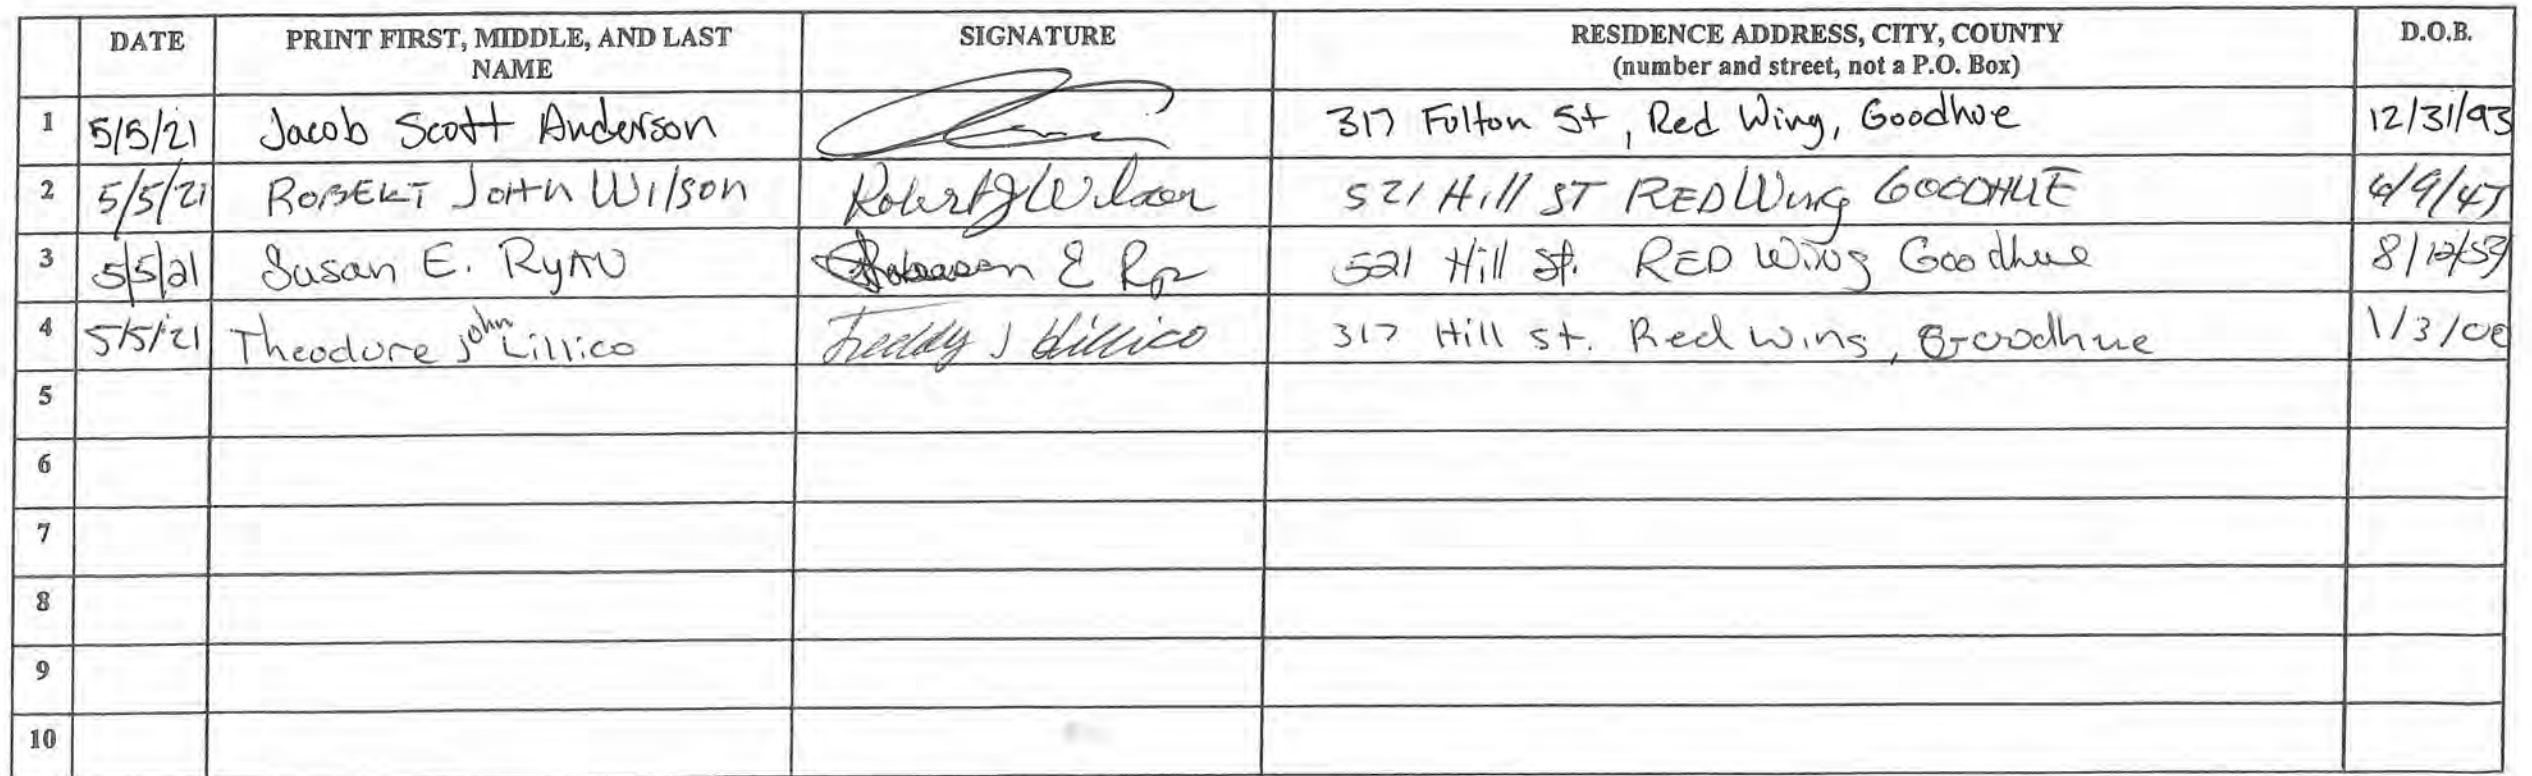 DATE PRINT FIRST, MIDDLE, AND LAST NAME SIGNATURE RESIDENCE ADDRESS, CITY, COUNTY (number and street, not a P.O. Box) D.O.B.
1 5/5/21 Jacob Scott Anderson 317 Fulton St, Red Wing, Goodhue 12/31/93
2 5/5/21 ROBERT JOHN WIlson Robert J Wilson 521 Hill ST RED WING GOODHUE
3 5/5/21 Susan E. RyAN E 521 Hill St. RED WiNg Goodhue
4 5/5/21 Theodore John Lillico Teddy J Lillico 317 Hill st. Red wing, Goodhue
5
6
7
8
9
10